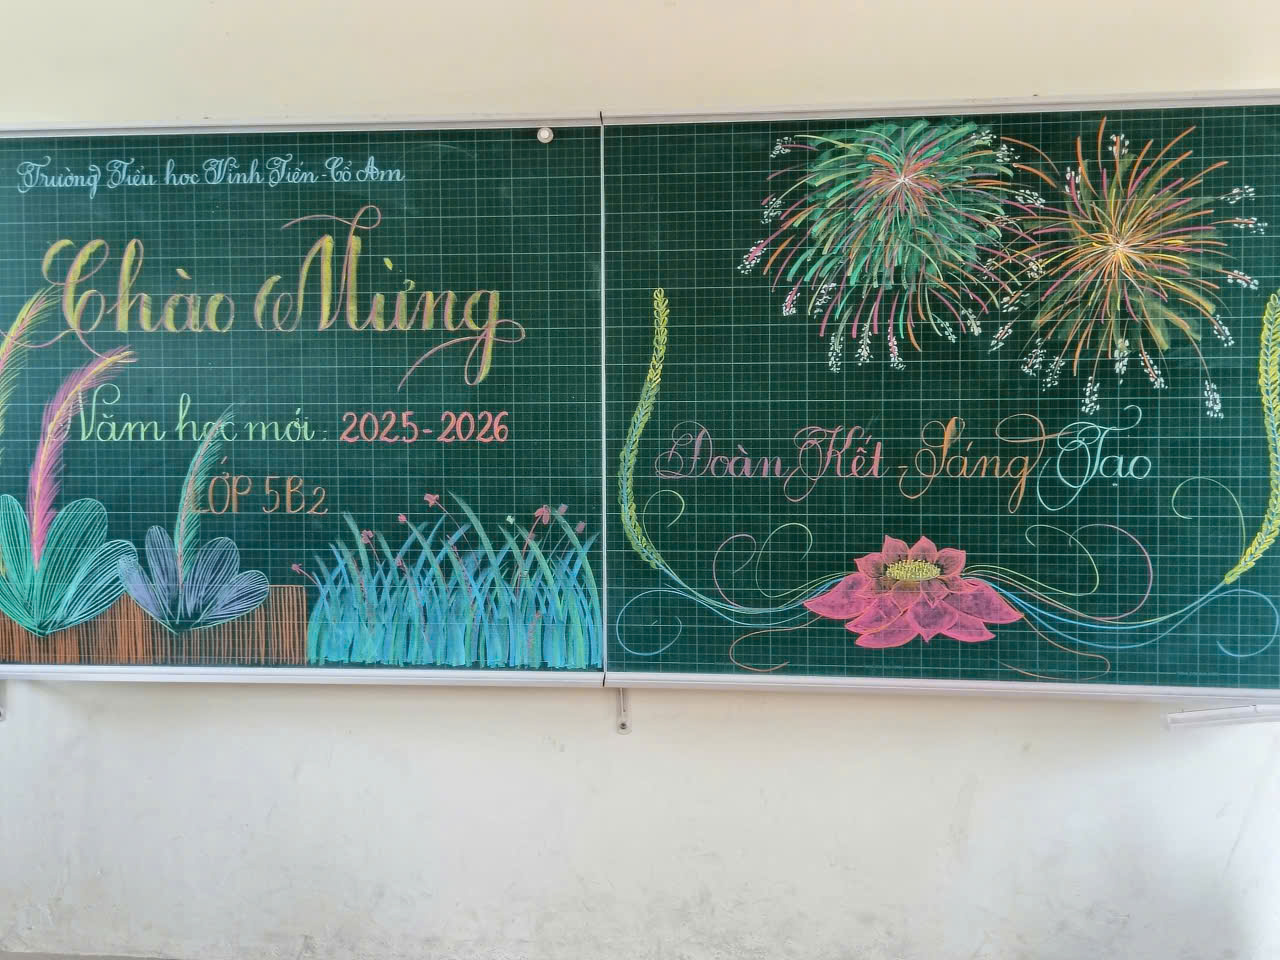 Trường Tiểu học Vĩnh Tiến - Cổ Am
Chào Mừng
Năm học mới: 2025-2026
LỚP 5B2
Đoàn Kết - Sáng Tạo